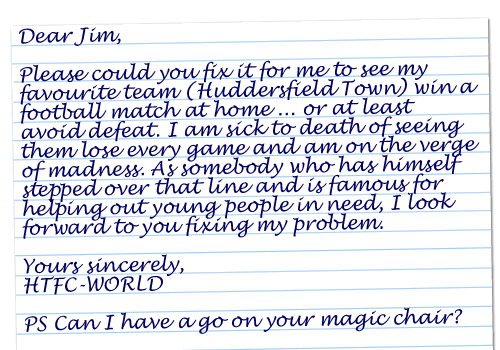 Dear Jim,
Please could you fix it for me to see my
favourite team (Huddersfield Town) win a
football match at home ... or at least
avoid defeat. I am sick to death of seeing
them lose every game and am on the verge
of madness. As somebody who has himself
stepped over that line and is famous for
helping out young people in need, I look
forward to you fixing my problem.
Yours sincerely,
HTFC-WORLD
PS Can I have a go on your magic chair?